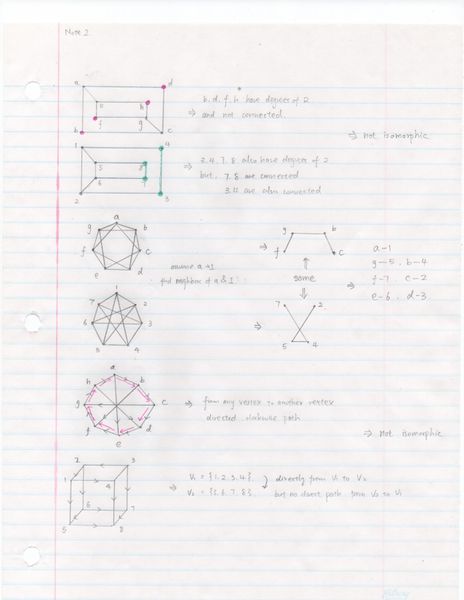 Note 2
a
d
e
h
f
g
b
c
b, d, f, h have degrees of 2
⇒ and not connected.
⇒ not isomorphic
1
4
5
8
6
7
2
3
⇒ 2.4.7.8 also have degrees of 2
but, 7.8 are connected
are also connected
a
g
b
f
c
e
d
assume a→1
find neighbors of a & 1
⇒
g
b
f
c
same
a-1
g-5, b-4
⇒ f-7, c-2
e-6, d-3
1
7
2
6
3
5
4
⇒
7
2
5
4
a
h
b
g
c
f
d
e
⇒ from any vertex to another vertex
directed clockwise path
⇒ Not isomorphic
2
3
1
4
6
7
5
8
⇒ V₁ = {1.2.3.4}, directly from V₁ to V₂
V₂ = {5.6.7.8}, but no direct path from V₂ to V₁